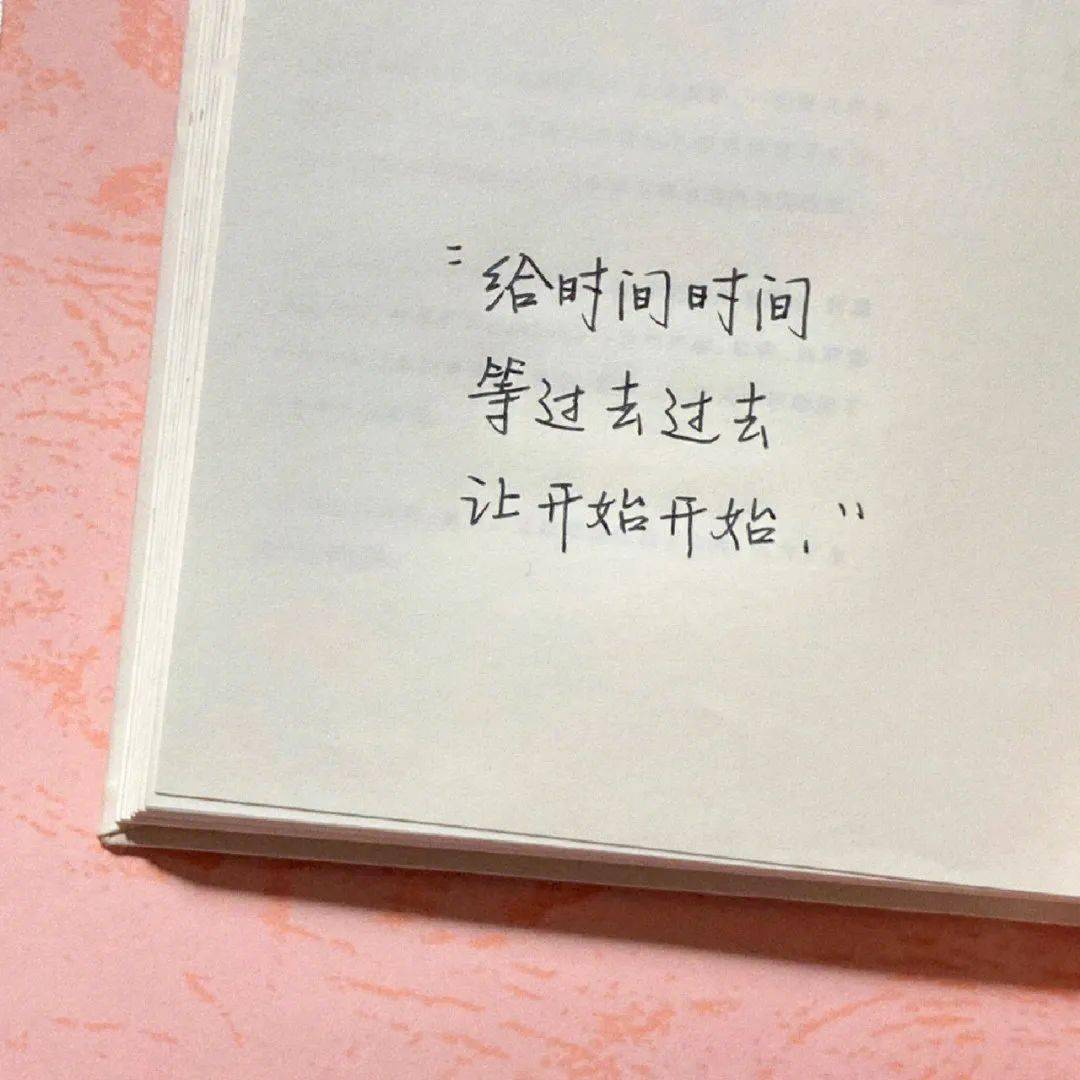 "给时间时间
等过去过去
让开始开始."